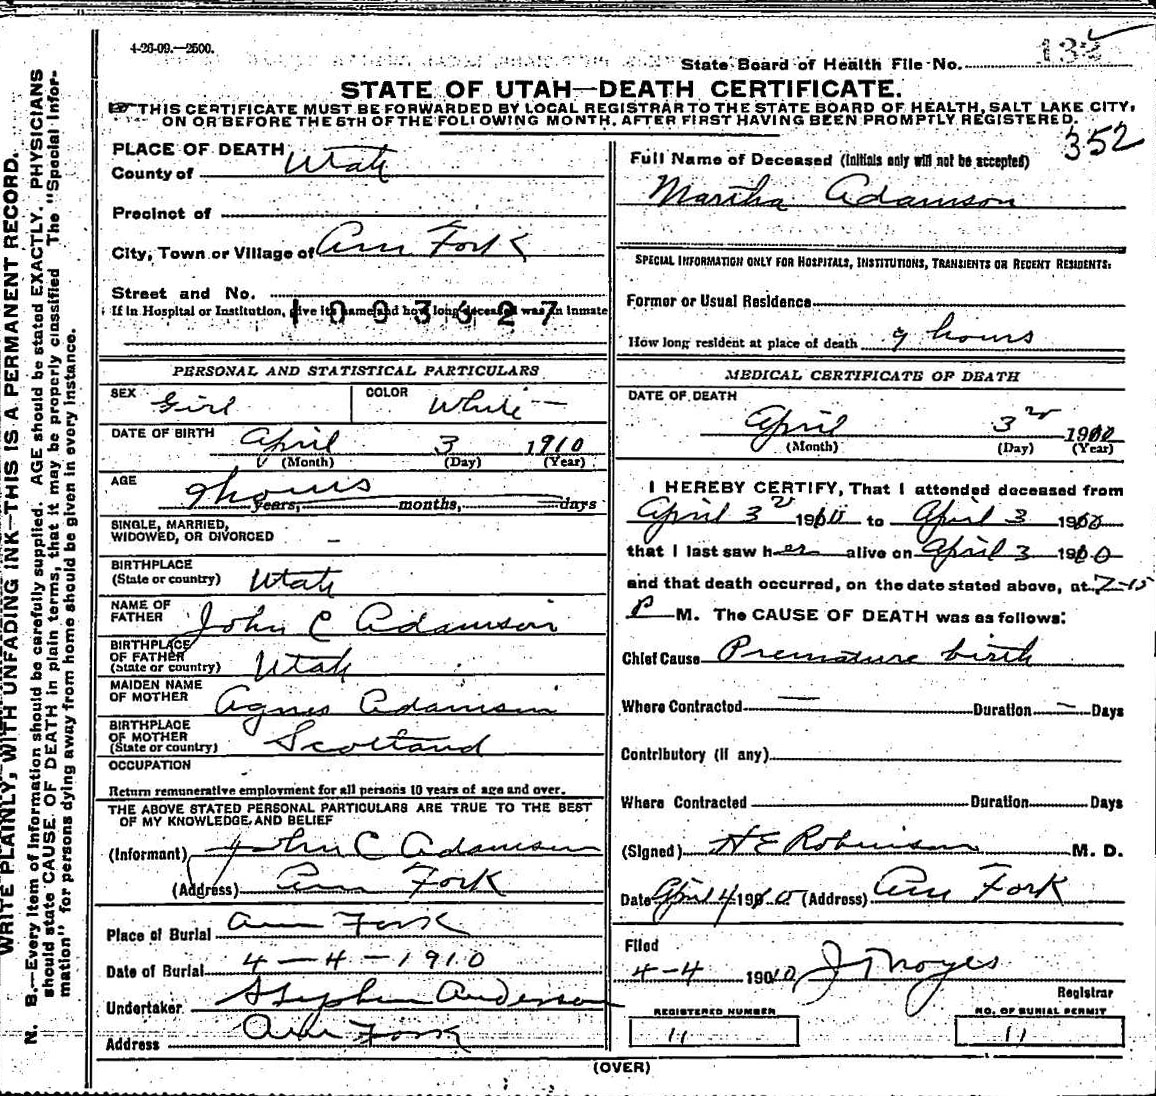 4-26-09.—2500.
State Board of Health File No. 132
STATE OF UTAH—DEATH CERTIFICATE.
THIS CERTIFICATE MUST BE FORWARDED BY LOCAL REGISTRAR TO THE STATE BOARD OF HEALTH, SALT LAKE CITY,
ON OR BEFORE THE 5TH OF THE FOLLOWING MONTH, AFTER FIRST HAVING BEEN PROMPTLY REGISTERED.
352
PLACE OF DEATH
County of Utah
Precinct of
City, Town or Village of Am Fork
Street and No.
If in Hospital or Institution, give its name and how long deceased was an inmate
1003627
Full Name of Deceased (Initials only will not be accepted)
Martha Adamson
SPECIAL INFORMATION ONLY FOR HOSPITALS, INSTITUTIONS, TRANSIENTS OR RECENT RESIDENTS:
Former or Usual Residence
How long resident at place of death 9 hours
PERSONAL AND STATISTICAL PARTICULARS
SEX Girl COLOR White
DATE OF BIRTH April 3 1910
(Month) (Day) (Year)
AGE 9 hours
years, months, days
SINGLE, MARRIED,
WIDOWED, OR DIVORCED –
BIRTHPLACE
(State or country) Utah
NAME OF
FATHER John C Adamson
BIRTHPLACE
OF FATHER
(State or country) Utah
MAIDEN NAME
OF MOTHER Agnes Adamson
BIRTHPLACE
OF MOTHER
(State or country) Scotland
OCCUPATION
Return remunerative employment for all persons 10 years of age and over.
THE ABOVE STATED PERSONAL PARTICULARS ARE TRUE TO THE BEST
OF MY KNOWLEDGE AND BELIEF
(Informant) John C Adamson
(Address) Am Fork
Place of Burial Am Fork
Date of Burial 4-4-1910
Undertaker Stephen Anderson
Address Am Fork
MEDICAL CERTIFICATE OF DEATH
DATE OF DEATH
April 3 1910
(Month) (Day) (Year)
I HEREBY CERTIFY, That I attended deceased from
April 3 1910 to April 3 1910
that I last saw her alive on April 3 1910
and that death occurred, on the date stated above, at 7-15
P M. The CAUSE OF DEATH was as follows:
Chief Cause Premature birth
Where Contracted — Duration – Days
Contributory (if any)
Where Contracted Duration Days
(Signed) H E Robinson M. D.
Date April 4 1910 (Address) Am Fork
Filed
4-4 1910 J T Noyes
Registrar
REGISTERED NUMBER
11
NO. OF BURIAL PERMIT
11
(OVER)
WRITE PLAINLY, WITH UNFADING INK—THIS IS A PERMANENT RECORD.
N. B.—Every item of information should be carefully supplied. AGE should be stated EXACTLY. PHYSICIANS
should state CAUSE OF DEATH in plain terms, that it may be properly classified The "Special Infor-
mation" for persons dying away from home should be given in every instance.